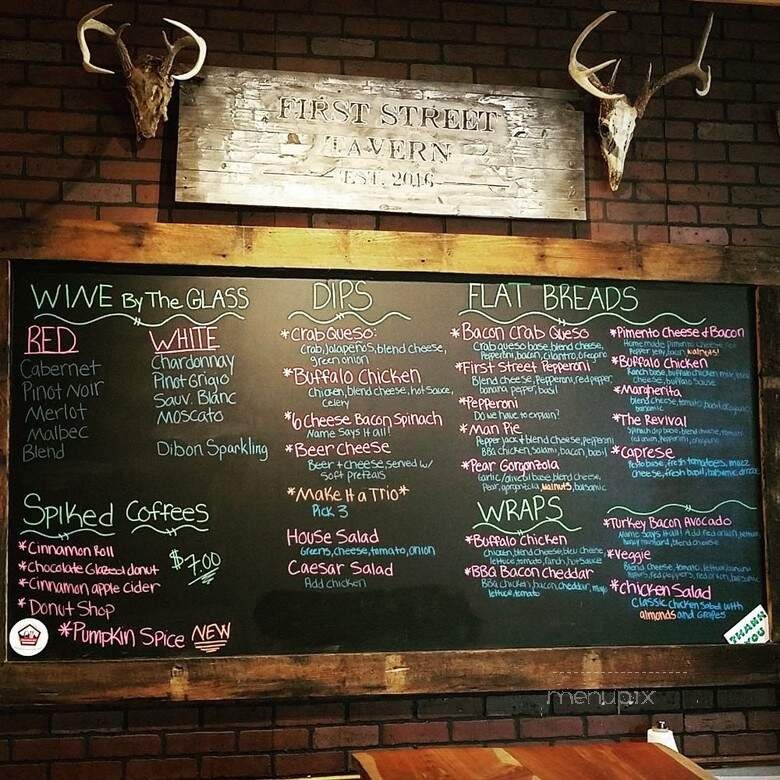 FIRST STREET
TAVERN
EST. 2016
WINE By The GLASS
RED
Cabernet
Pinot Noir
Merlot
Malbec
Blend
WHITE
Chardonnay
Pinot Grigio
Sauv. Blanc
Moscato
Dibon Sparkling
Spiked Coffees
*Cinnamon Roll
*Chocolate Glazed donut
*Cinnamon apple cider
*Donut Shop
*Pumpkin Spice NEW
$7.00
DIPS
*Crab Queso:
Crab, Jalapeños, blend cheese,
green onion
*Buffalo Chicken
Chicken, blend cheese, hot sauce,
celery
*6 Cheese Bacon Spinach
Name Says it all!
*Beer cheese
Beer + cheese, served w/
soft pretzals
*Make it a Trio*
Pick 3
House Salad
Greens, cheese, tomato, onion
Caesar Salad
Add chicken
FLAT BREADS
*Bacon Crab Queso
Crab queso base, blend cheese,
Pepperoni, bacon, cilantro, oregano
*First Street Pepperoni
Blend cheese, Pepperoni, red pepper,
banana pepper, basil
*Pepperoni
Do we have to explain?
*Man Pie
Pepperjack + blend cheese, pepperoni
BBQ chicken, salami, bacon, basil
*Pear Gorgonzola
Garlic/olive oil base, blend cheese,
Pear, gorgonzola, walnuts, balsamic
*Pimento Cheese & Bacon
Homemade pimento cheese
Pepper jelly, bacon walnuts!
*Buffalo Chicken
Ranch base, buffalo chicken
cheese, buffalo sauce
*Margherita
blend cheese, tomato, basil
balsamic
*The Revival
red onion, Pepperoni, oregano
*caprese
Pesto base, fresh tomatoes, mozz
cheese, fresh basil, balsamic
WRAPS
*Buffalo Chicken
Chicken, blend cheese, bleu cheese,
lettuce, tomato, ranch, hot sauce
*BBQ Bacon Cheddar
BBQ chicken, bacon, cheddar, mayo
lettuce, tomato
*Turkey Bacon Avocado
Name Says it all! Add red onion,
honey mustard, blend cheese
*Veggie
Blend cheese, tomato, lettuce, banana
Peppers, red peppers, red onion, balsamic
*Chicken Salad
Classic chicken salad with
almonds and Grapes
THANK
YOU
menupix